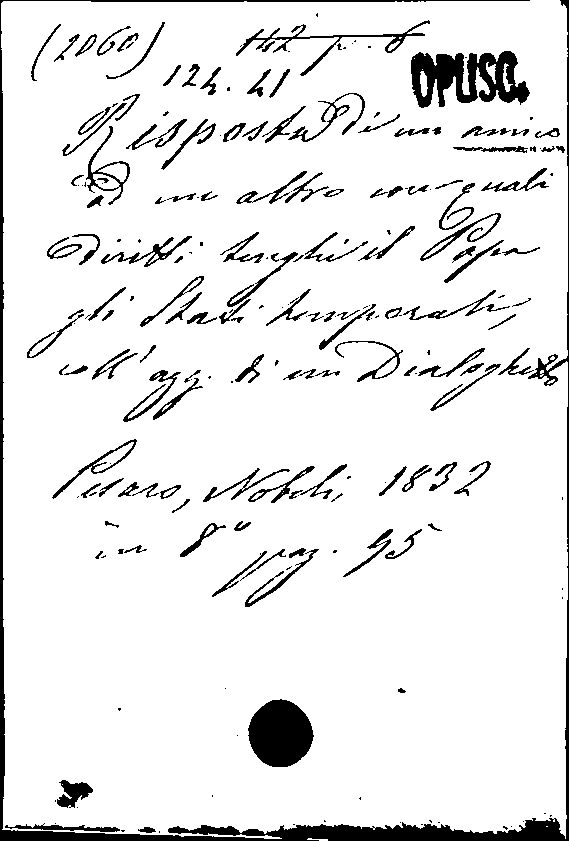 (2060) 142 p. 6
OPUSC.
124. 41
Risposta di un amico
ad un altro con quali
diritti tenghi il Papa
gli Stati temporali,
coll' agg. di un Dialoghetto
Pesaro, Nobili, 1832
in 8° pag. 95